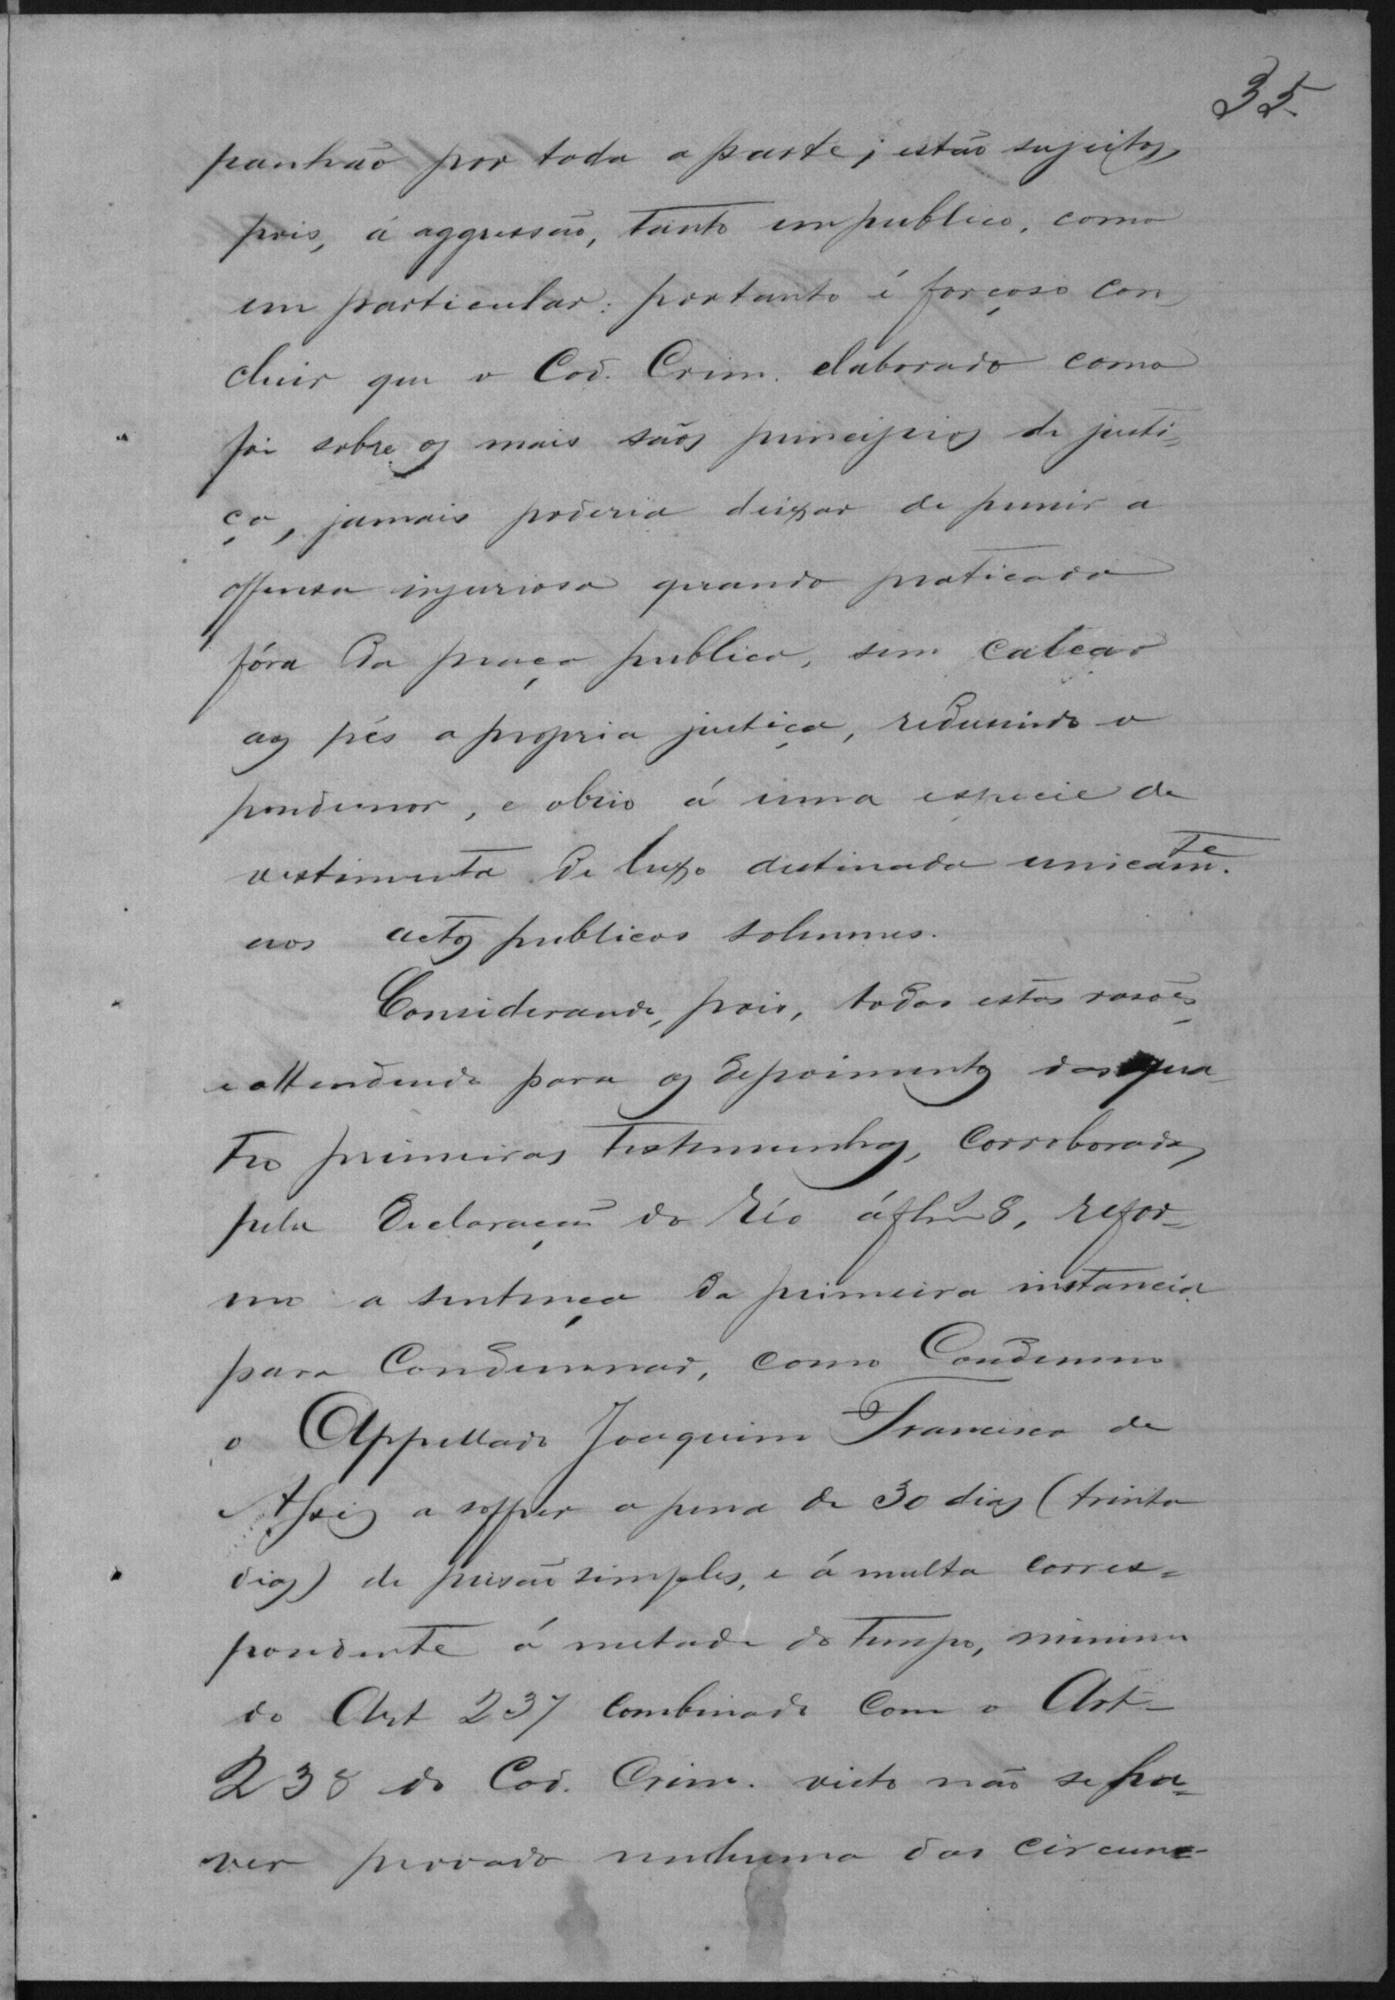 35
panhão por toda a parte; estão sujeitos,
pois, á aggressão, tanto em publico, como
em particular: portanto é forçoso con
cluir que o Cod. Crim. elaborado como
foi sobre os mais sãos principios de justi=
ça, jamais poderia deixar de punir a
offensa injuriosa quando praticada
fóra da praça publica, sem calcar
aos pés a propria justiça, redusindo o
pondunor, e o brio á uma especie de
vestimenta de luxo destinada unicamte.
aos actos publicos solemnes.
Considerando, pois, todas estas rasões,
e attendendo para os depoimentos das qua
tro primeiras testemunhas, corroborados
pela declaração do Réo á fls 8, refor=
mo a sentença da primeira instancia
para Condemnar, como Condemno
o Appellado Joaquim Francisco de
Assis a soffrer a pena de 30 dias (trinta
dias) de prisão simples, e á multa corres=
pondente á metade do tempo, minimo
do Art 237 combinado com o Art
238 do Cod. Crim. visto não se ha=
ver provado nenhuma das circuns-